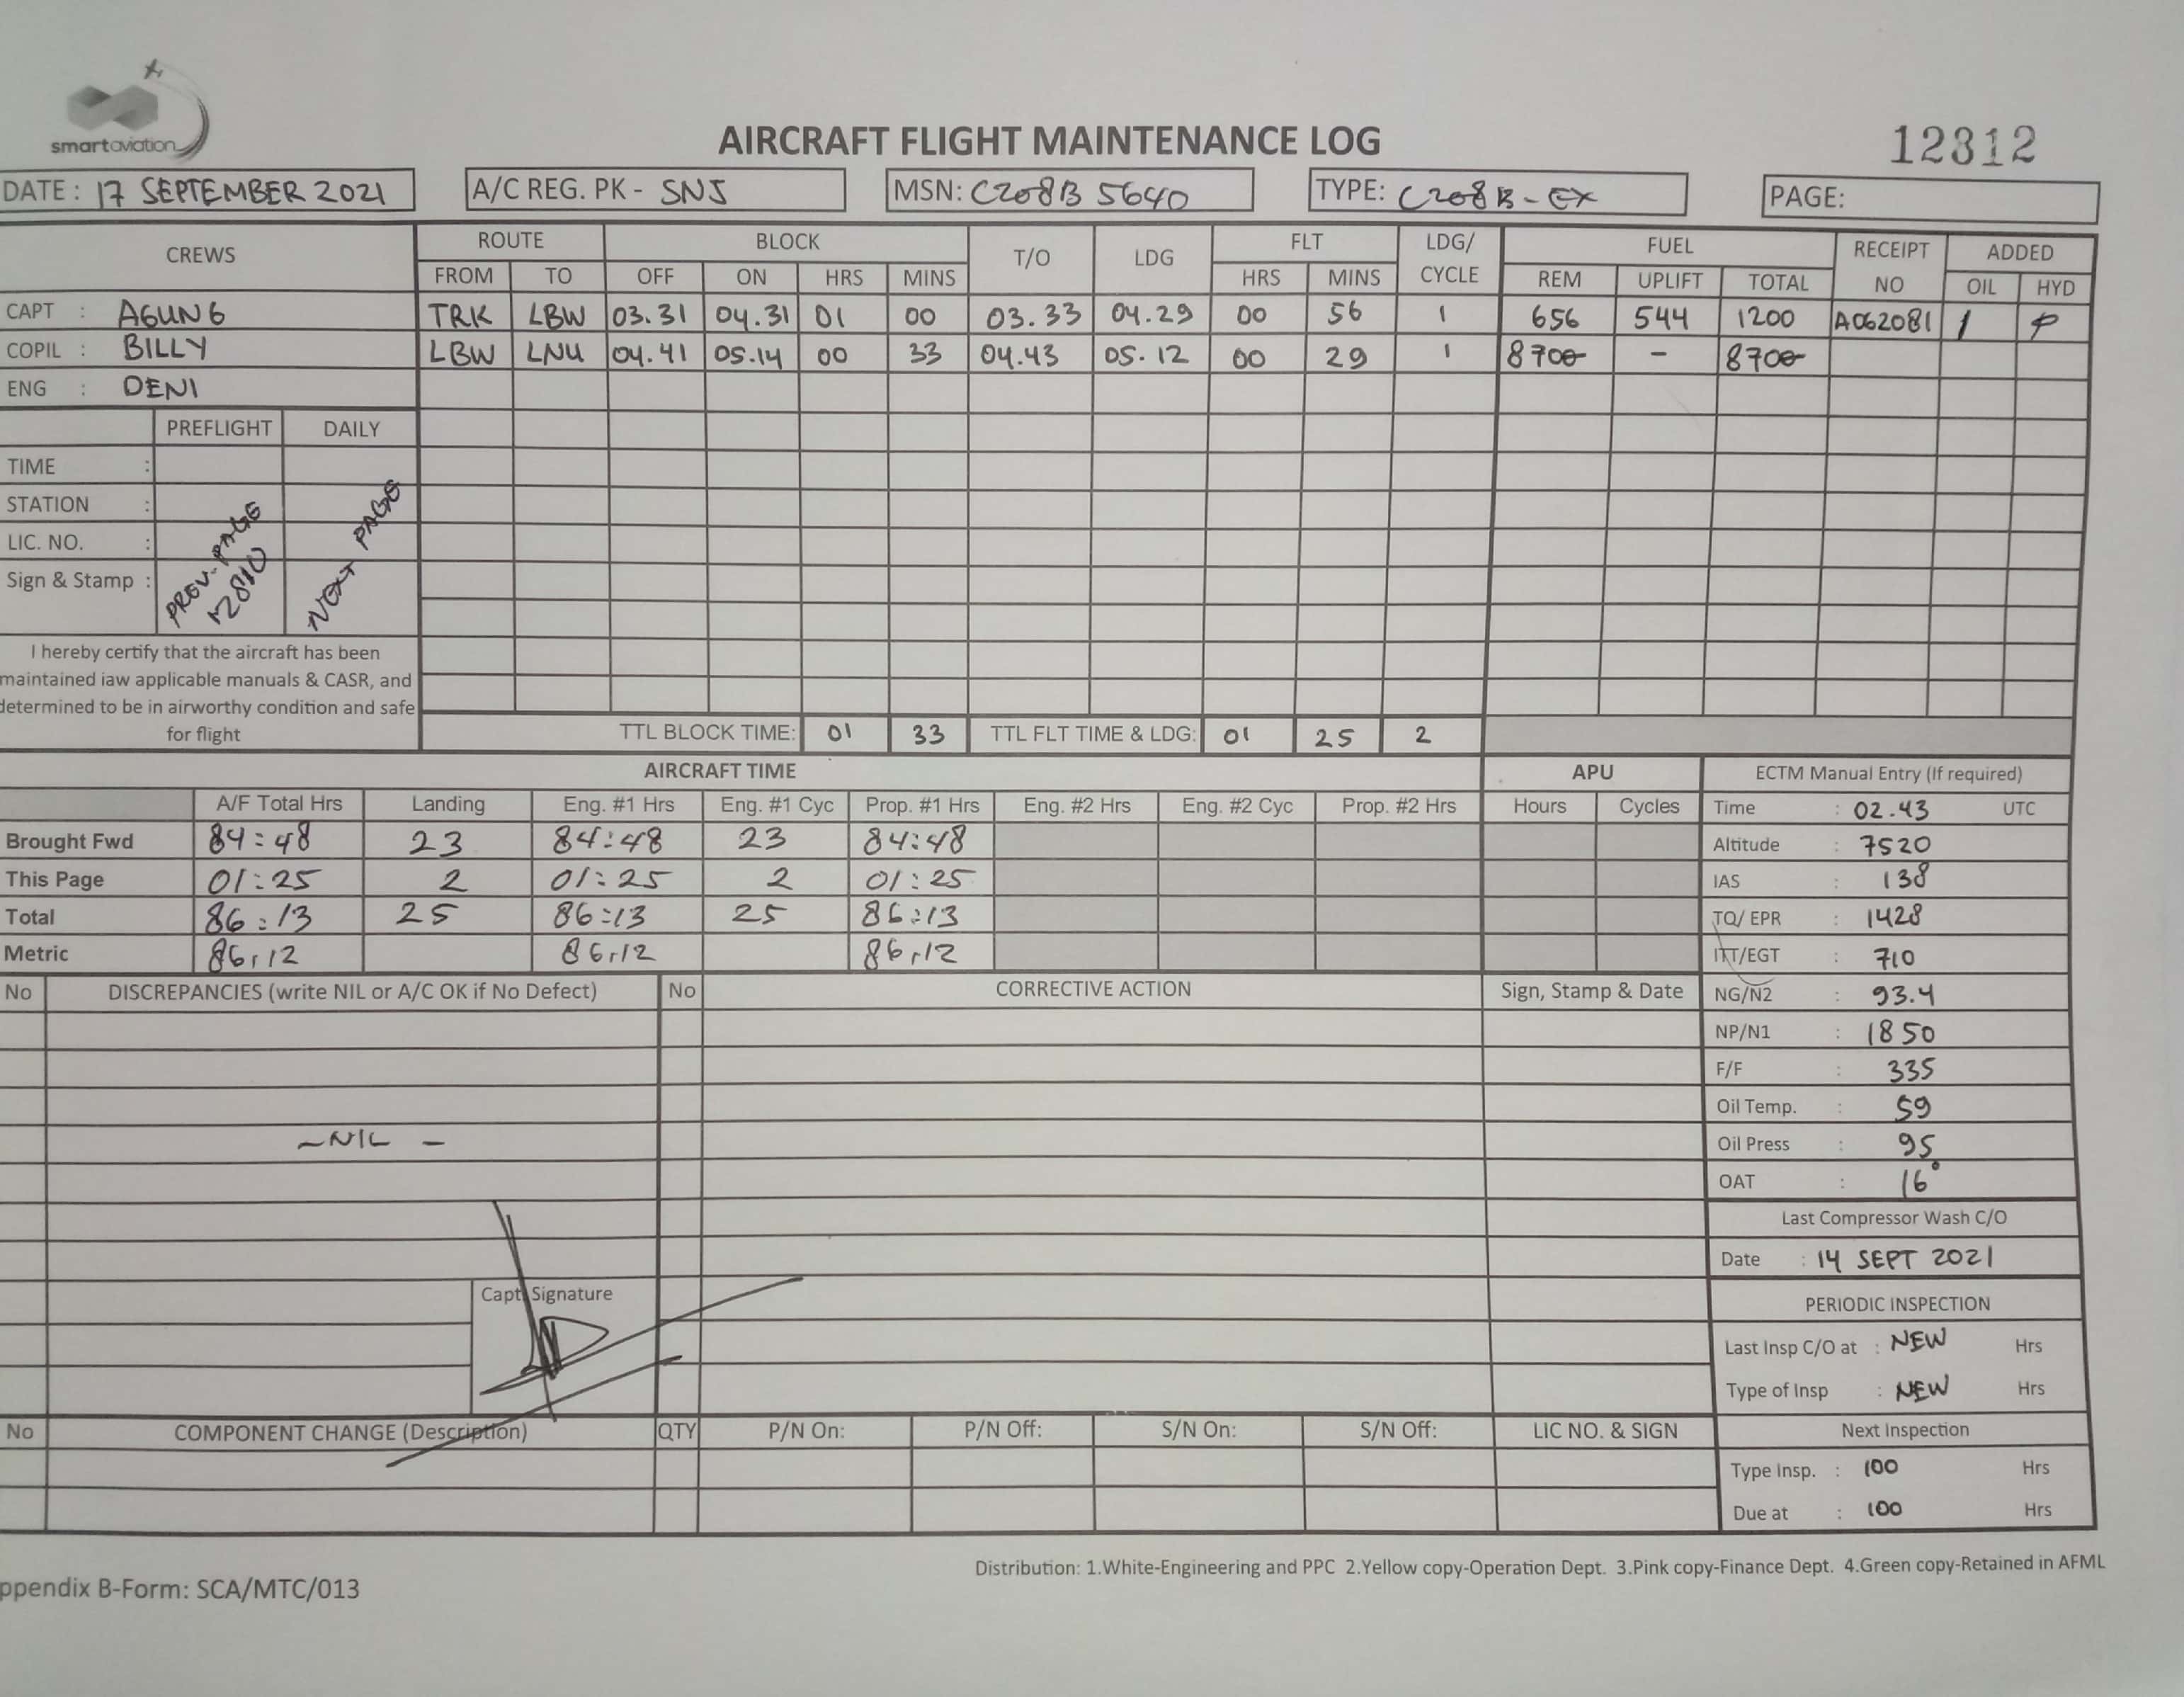 smartaviation
AIRCRAFT FLIGHT MAINTENANCE LOG
12312
DATE : 17 SEPTEMBER 2021
A/C REG. PK - SNJ
MSN: C208B 5640
TYPE: C208B - EX
PAGE:
CREWS ROUTE BLOCK T/O LDG FLT LDG/ CYCLE FUEL RECEIPT NO ADDED
FROM TO OFF ON HRS MINS HRS MINS REM UPLIFT TOTAL OIL HYD
CAPT : AGUNG TRK LBW 03.31 04.31 01 00 03.33 04.29 00 56 1 656 544 1200 A062081
COPIL : BILLY LBW LNU 04.41 05.14 00 33 04.43 05.12 00 29 1 870 - 870
ENG : DENI
PREFLIGHT DAILY
TIME :
STATION :
LIC. NO. :
Sign & Stamp :
PREV. PAGE
NEXT PAGE
I hereby certify that the aircraft has been
maintained iaw applicable manuals & CASR, and
determined to be in airworthy condition and safe
for flight
TTL BLOCK TIME: 01 33 TTL FLT TIME & LDG: 01 25 2
AIRCRAFT TIME APU ECTM Manual Entry (If required)
A/F Total Hrs Landing Eng. #1 Hrs Eng. #1 Cyc Prop. #1 Hrs Eng. #2 Hrs Eng. #2 Cyc Prop. #2 Hrs Hours Cycles
Brought Fwd 84:48 23 84:48 23 84:48
This Page 01:25 2 01:25 2 01:25
Total 86:13 25 86:13 25 86:13
Metric 86,12 86,12 86,12
Time : 02.43 UTC
Altitude : 7520
IAS : 138
TQ/ EPR : 1428
ITT/EGT : 710
NG/N2 : 93.4
NP/N1 : 1850
F/F : 335
Oil Temp. : 59
Oil Press : 95
OAT : 16°
No DISCREPANCIES (write NIL or A/C OK if No Defect) No CORRECTIVE ACTION Sign, Stamp & Date
- NIL -
Capt. Signature
Last Compressor Wash C/O
Date : 14 SEPT 2021
PERIODIC INSPECTION
Last Insp C/O at : NEW Hrs
Type of Insp : NEW Hrs
No COMPONENT CHANGE (Description) QTY P/N On: P/N Off: S/N On: S/N Off: LIC NO. & SIGN
Next Inspection
Type Insp. : 100 Hrs
Due at : 100 Hrs
Distribution: 1.White-Engineering and PPC 2.Yellow copy-Operation Dept. 3.Pink copy-Finance Dept. 4.Green copy-Retained in AFML
ppendix B-Form: SCA/MTC/013